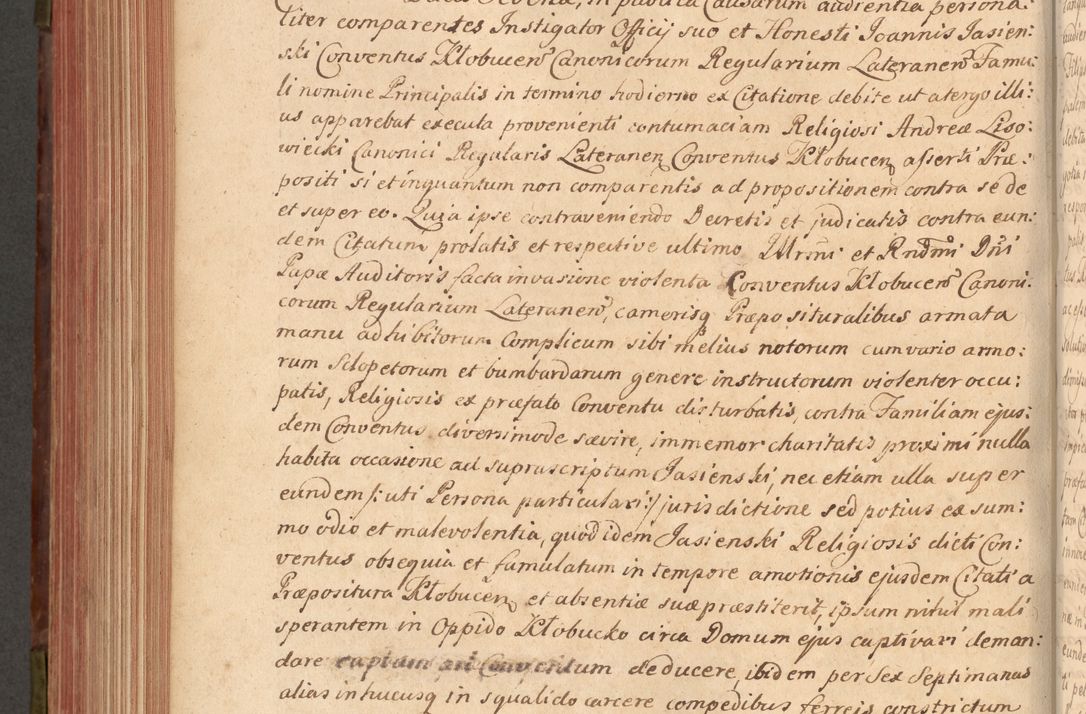 in publica Causarum audientia persona:
liter comparentes Instigator Officij suo et Honesti Joannis Jasien:
ski Conventus Kłobucen Canonicorum Regularium Lateranen Famu:
li nomine Principalis in termino hodierno ex Citatione debite ut atergo illi:
us apparebat executa provenienti contumaciam Religiosi Andreæ Liso:
wiecki Canonici Regularis Lateranen Conventus Kłobucen asserti Præ:
positi si et inquantum non comparentis ad propositionem contra se de
et super eo. Quia ipse contraveniendo Decretis et judicatis contra eun:
dem Citatum prolatis et respective ultimo Illrmi et Rndmi Dni
Papæ Auditoris facta invasione violenta Conventus Kłobucen Canoni:
corum Regularium Lateranen, camerisq Præposituralibus armata
manu adhibitorum Complicum sibi melius notorum cum vario armo:
rum Sclopetorum et bumbardarum genere instructorum violenter occu:
patis, Religiosis ex præfato Conventu disturbatis, contra Familiam ejus:
dem Conventus diversimode sævire, immemor charitatis proximi nulla
habita occasione ad supra scriptum Jasienski, nec etiam ulla super
eundem /: uti Persona particulari :/ jurisdictione sed potius ex sum:
mo odio et malevolentia, quod idem Jasienski Religiosis dicti Con:
ventus obsequia et famulatum in tempore amotionis ejusdem Citati a
Præpositura Kłobucen et absentiæ suæ præstiterit, ipsum nihil mali
sperantem in Oppido Kłobucko circa Domum ejus captivari deman:
dare captum ad Conventum deducere, ibidem per Sex Septimanas
alias in hucusq in squalido carcere compedibus ferreis constrictum